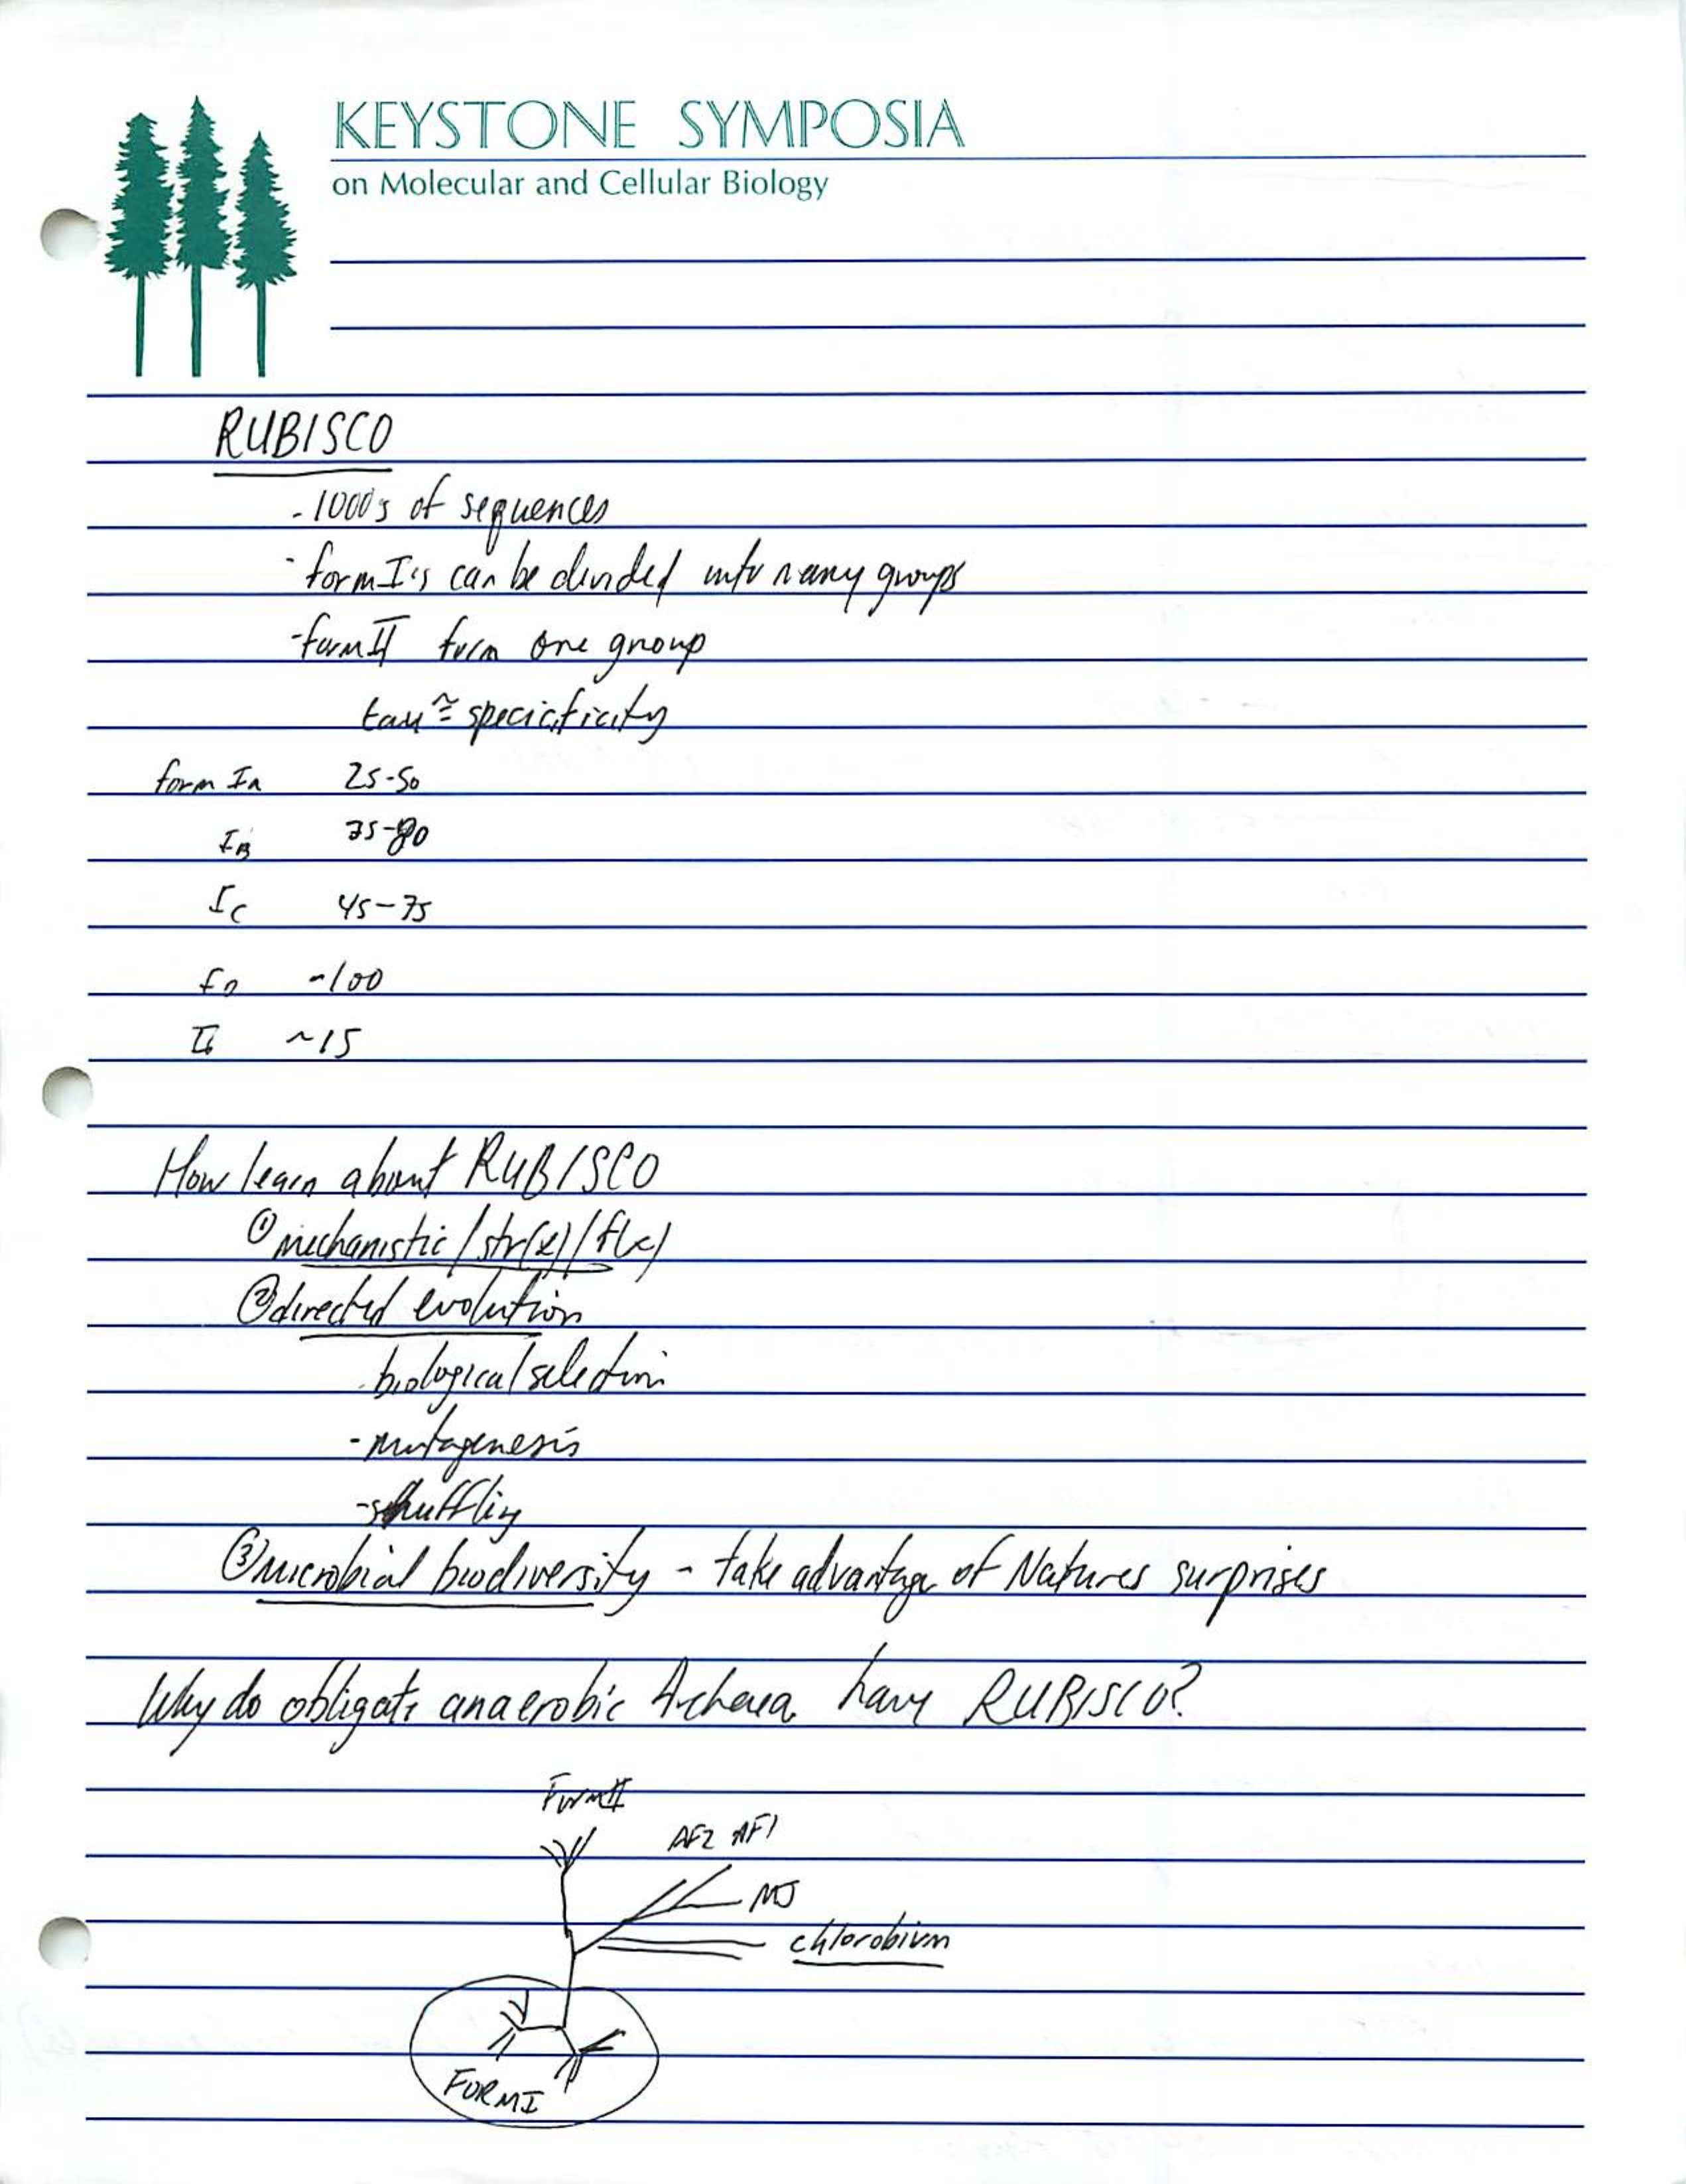 KEYSTONE SYMPOSIA
on Molecular and Cellular Biology
RUBISCO
- 1000's of sequences
- form I's can be divided into many groups
- form II form one group
tau ≅ specicificity
form IA 25-50
IB 75-80
IC 45-75
ID ~100
II ~15
How learn about RUBISCO
① mechanistic/str(x)/f(x)
② directed evolution
- biological selection
- mutagenesis
- shuffling
③ microbial biodiversity - take advantage of Natures surprises
Why do obligate anaerobic Archaea have RUBISCO?
Form II
AF2 AF1
MJ
chlorobium
FORM I